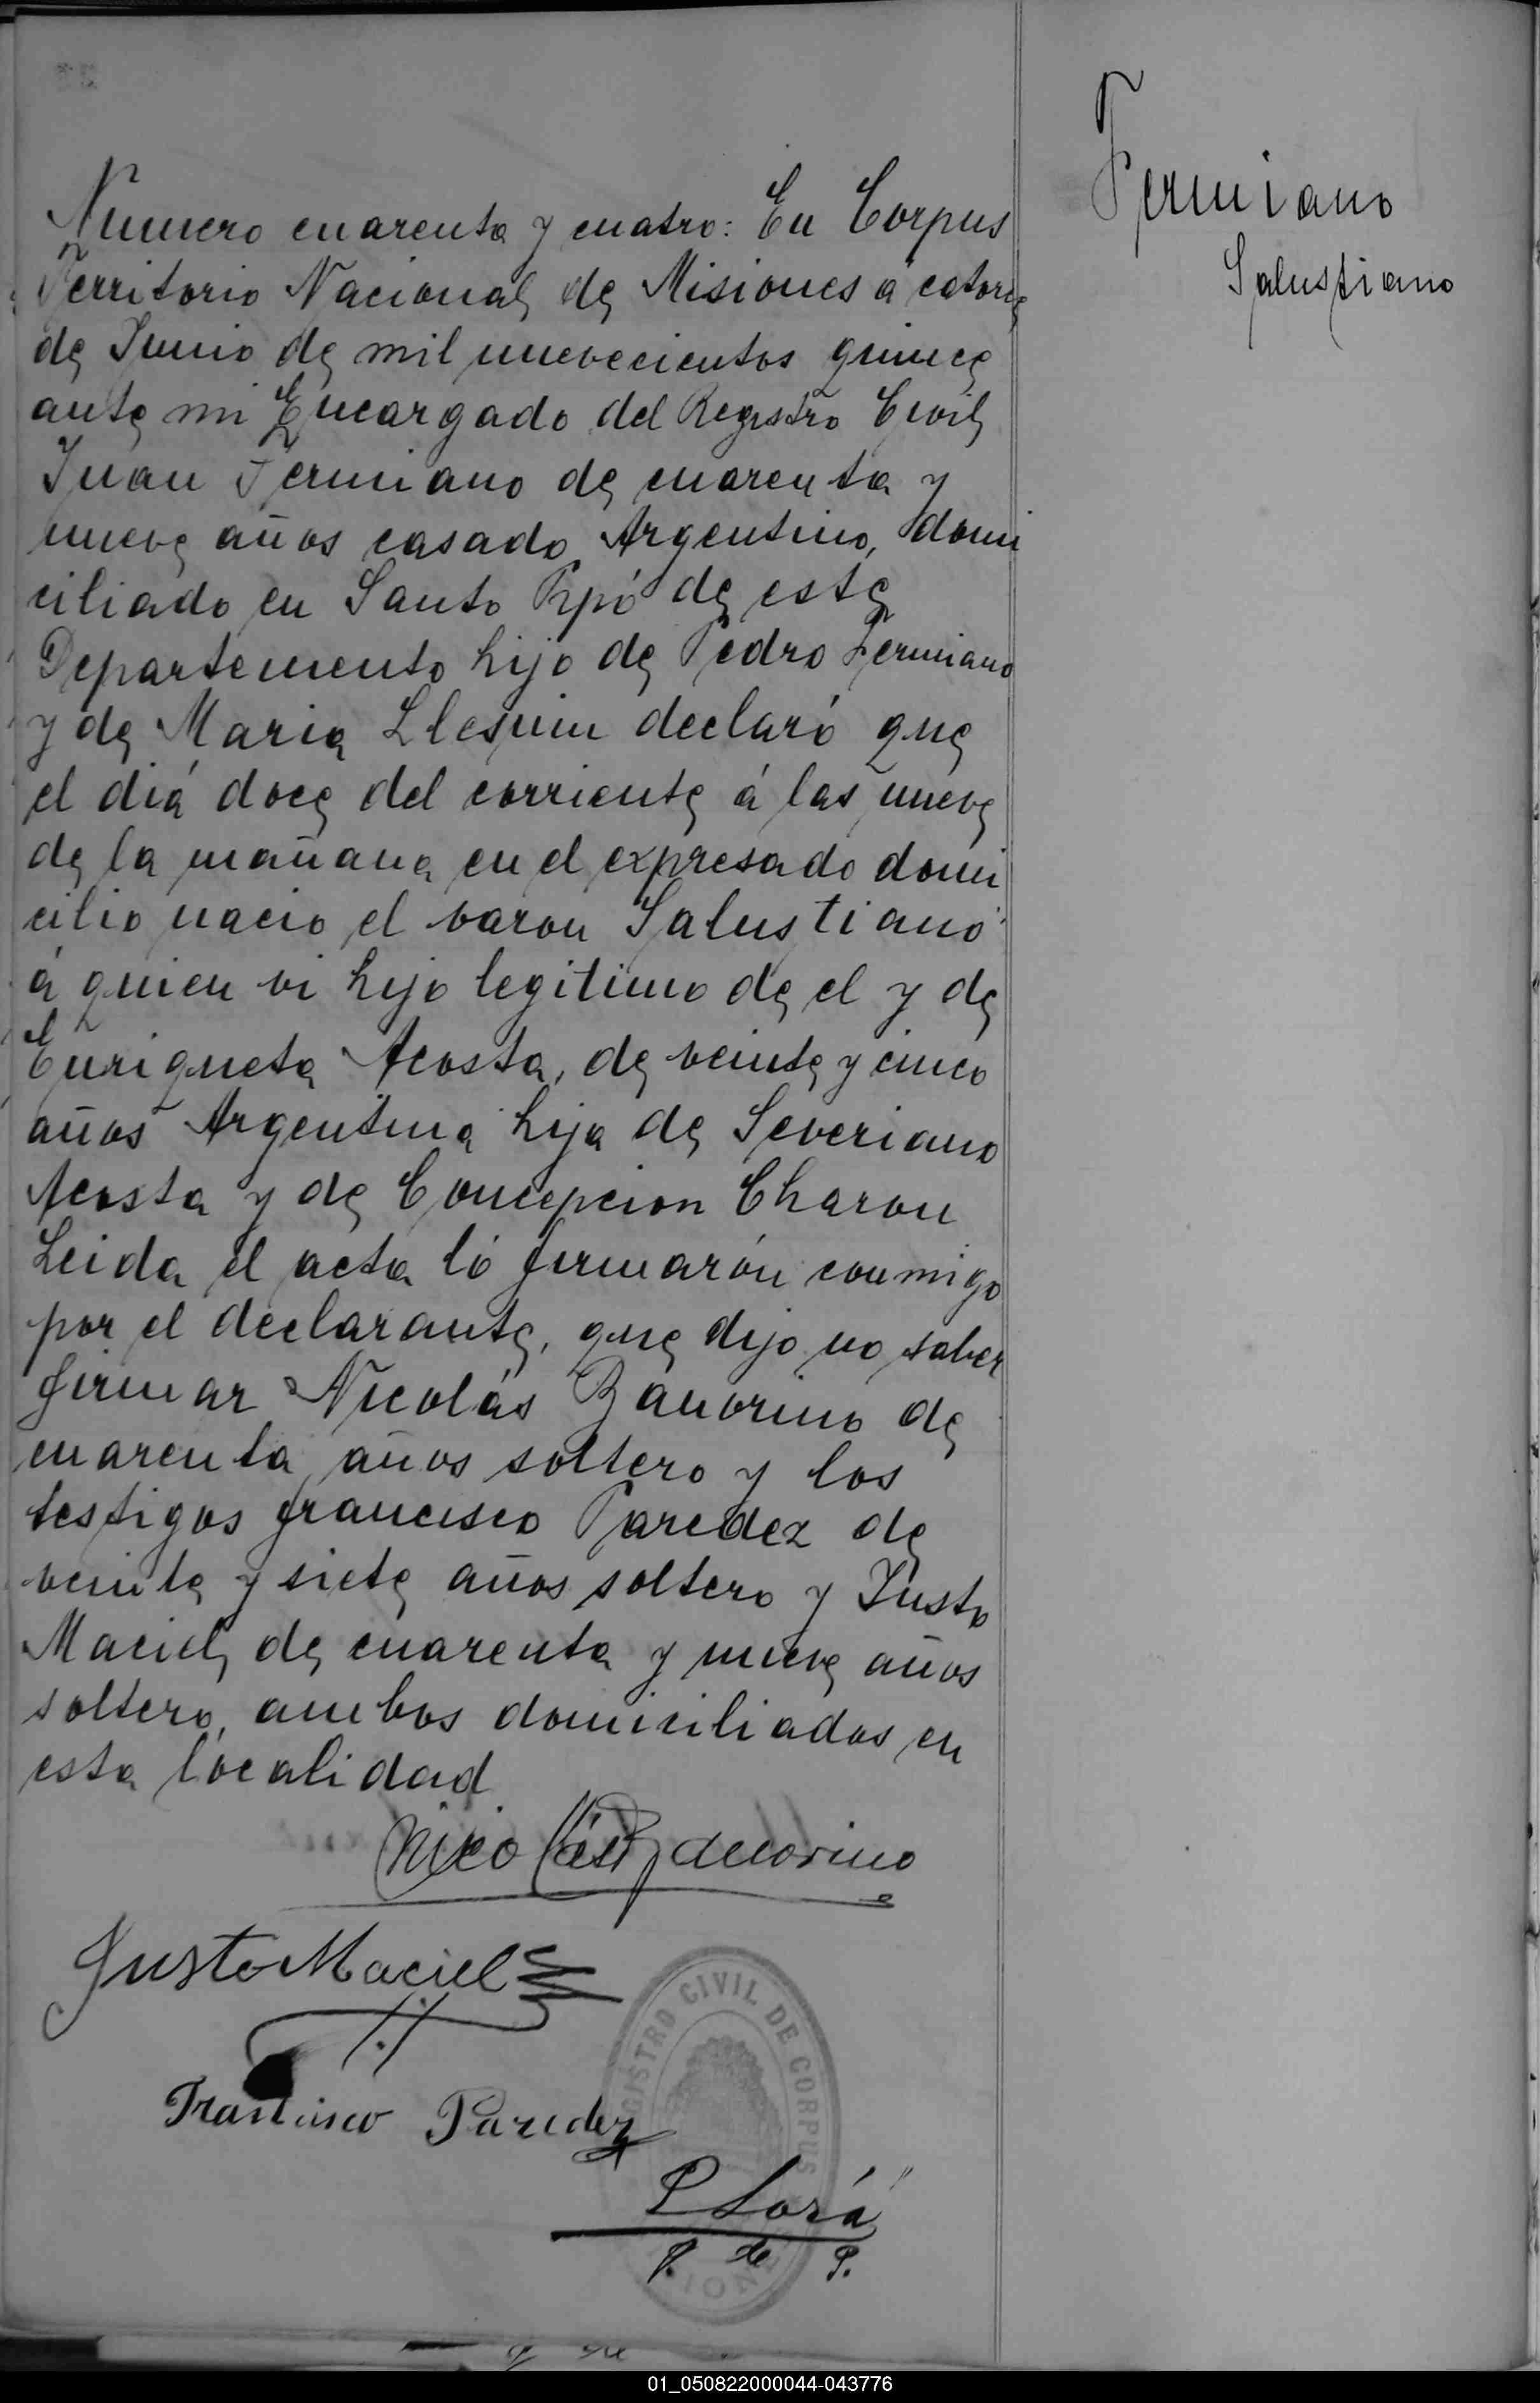 Fermiano
Salustiano
Numero cuarenta y cuatro: En Corpus
Territorio Nacional de Misiones a catorce
de Junio de mil nuevecientos quince
ante mi Encargado del Registro Civil
Juan Fermiano de cuarenta y
nueve años casado Argentino, domi
ciliado en Santo Pipó de este
Departemento hijo de Pedro Fermiano
y de Maria declaró que
el diá doce del corriente á las nueve
de la mañana en el expresado domi
cilio nacio el varon Salustiano
á quien vi hijo legitimo de el y de
Enriqueta Acosta, de veinte y cinco
años Argentina hija de Severiano
Acosta y de Concepcion Charon
Leida el acta ló firmarón conmigo
por el declarante, que dijo no saber
firmar Nicolás de
cuarenta años soltero y los
testigos francisco Paredez de
veinte y siete años soltero y Justo
Maciel de cuarenta y nueve años
soltero, ambos domiciliados en
esta localidad
Nicolás
Justo Maciel
REGISTRO CIVIL DE CORPUS
MISIONES
Francisco Paredez
P Lorá
J. de P.
01_050822000044-043776